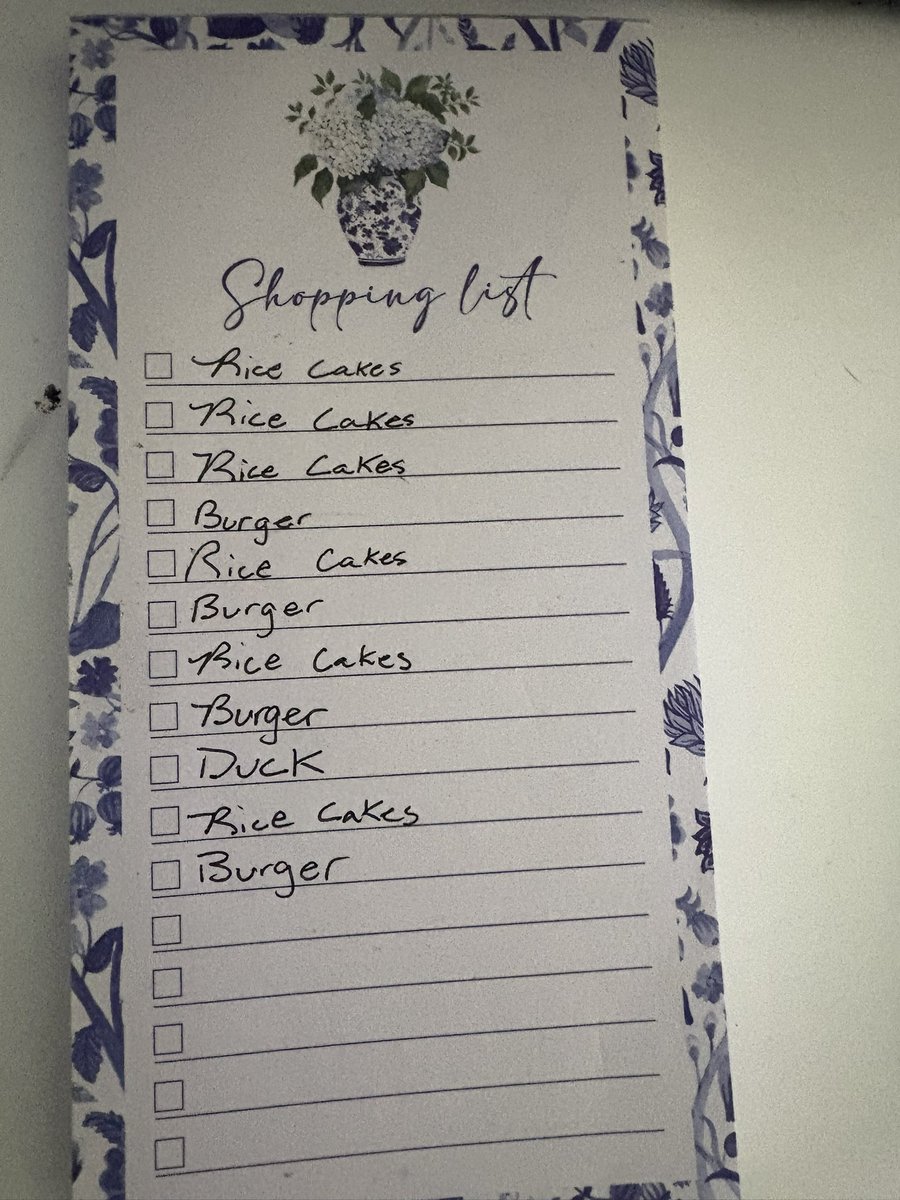 Shopping list
Rice Cakes
Rice Cakes
Rice Cakes
Burger
Rice Cakes
Burger
Rice Cakes
Burger
Duck
Rice Cakes
Burger